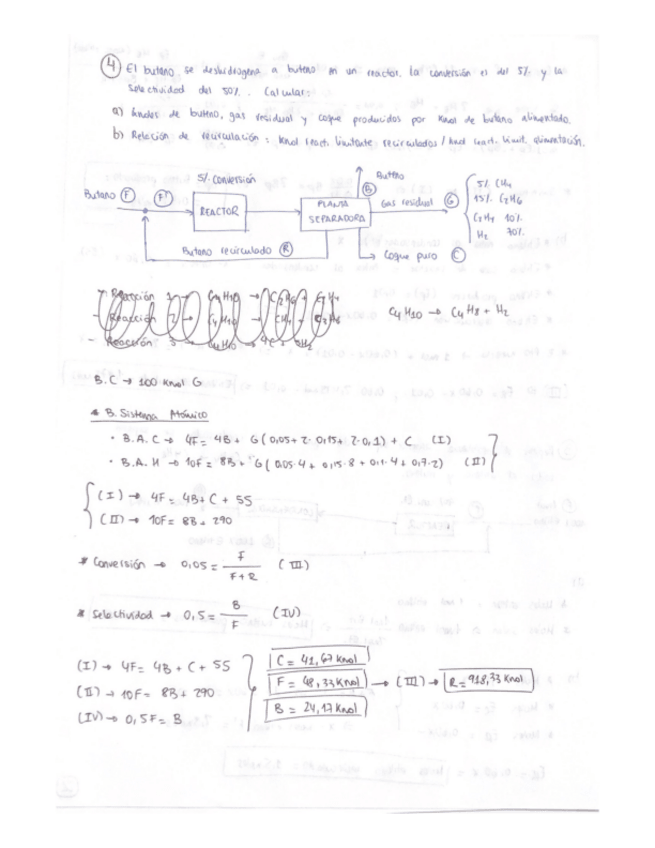 ④ El butano se deshidrogena a buteno en un reactor. La conversión es del 5% y la
selectividad del 50%. Calcular:
a) kmoles de buteno, gas residual y coque producidos por kmol de butano alimentado.
b) Relación de recirculación: kmol react. limitante recirculados / kmol react. limit. alimentación.
Buteno
5% conversión
Butano F F' REACTOR PLANTA SEPARADORA B Gas residual G
5% CH4
15% C2H6
C2H4 10%
H2 70%
Butano recirculado R
Coque puro C
- Reacción 1 → C4H10 → C2H6 + C2H4
- Reacción 2 → C4H10 →
- Reacción 3 → C4H10 →
C4H10 → C4H8 + H2
B.C → 100 kmol G
* B. Sistema Atómico
· B.A.C → 4F = 4B + G(0,05 + 2·0,15 + 2·0,1) + C (I)
· B.A.H → 10F = 8B + G(0,05·4 + 0,15·8 + 0,1·4 + 0,7·2) (II)
(I) → 4F = 4B + C + 55
(II) → 10F = 8B + 290
* Conversión → 0,05 = F / F+R (III)
* Selectividad → 0,5 = B / F (IV)
(I) → 4F = 4B + C + 55
(II) → 10F = 8B + 290
(IV) → 0,5F = B
C = 41,67 kmol
F = 48,33 kmol → (III) → R = 918,33 kmol
B = 24,17 kmol